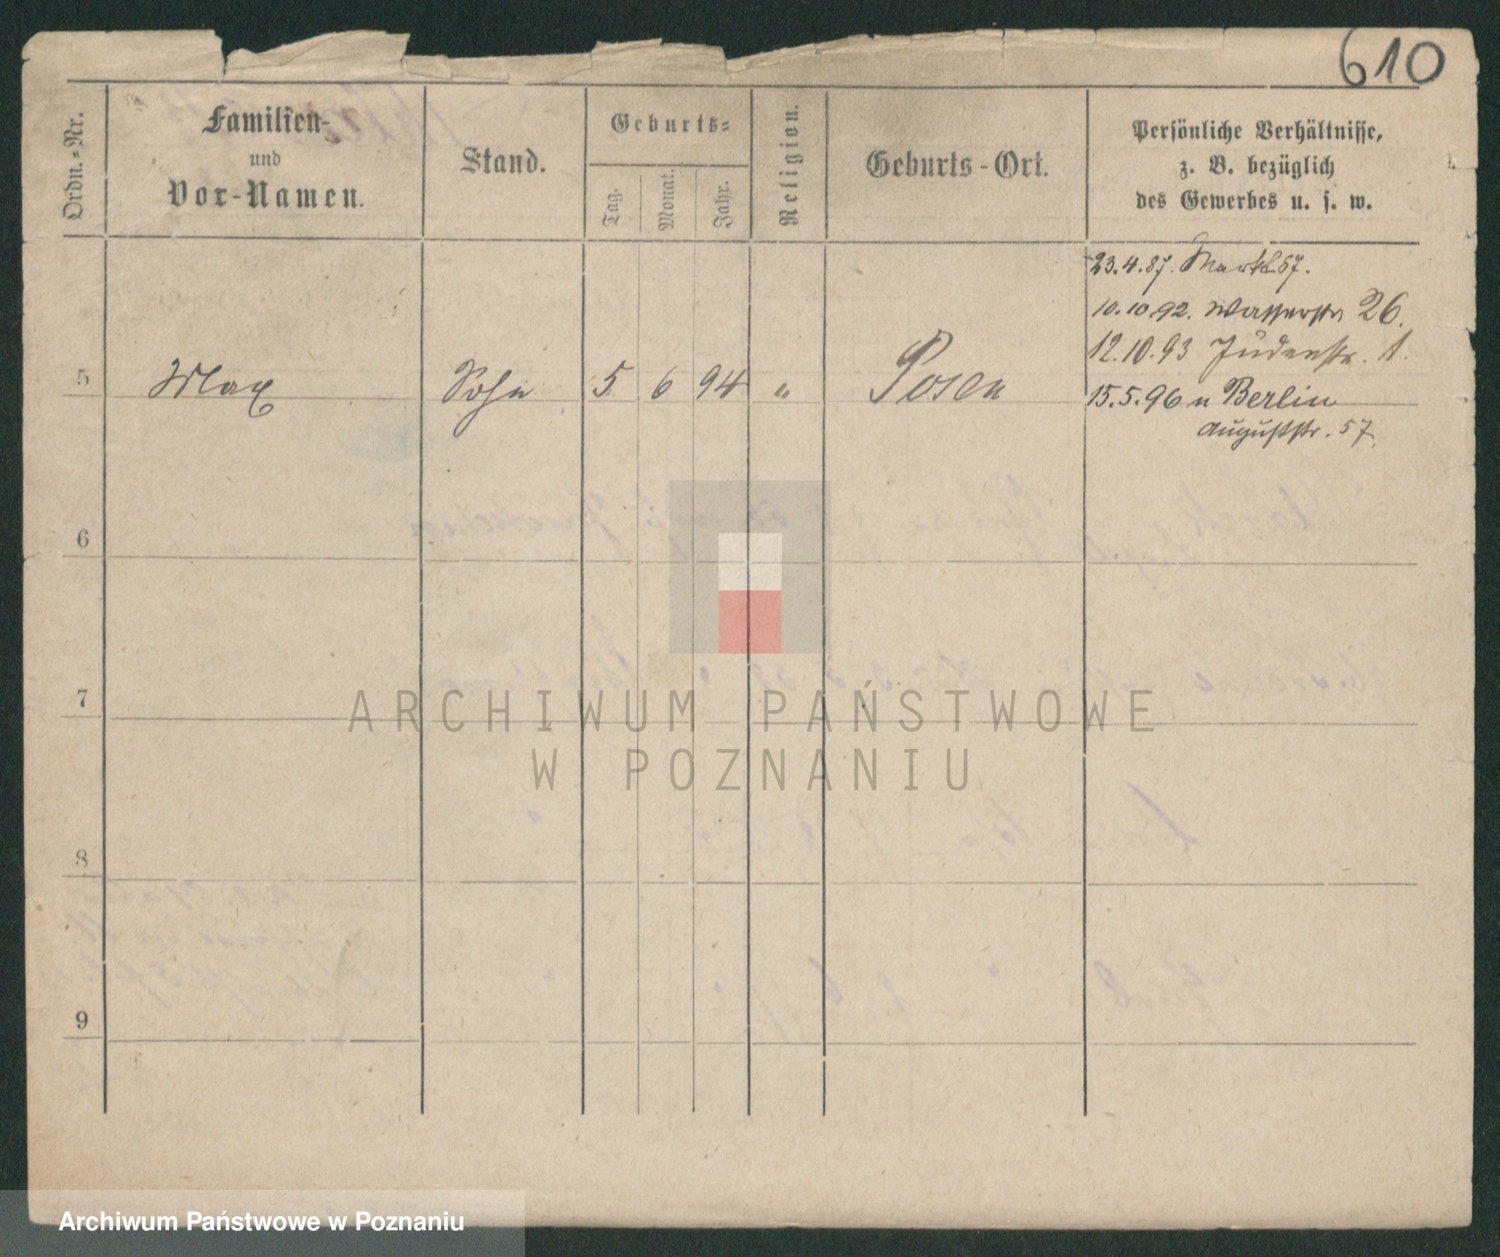 610
Ordn.-Nr.
Familien-
und
Vor-Namen.
Stand.
Geburts-
Tag.
Monat.
Jahr.
Religion.
Geburts-Ort.
Persönliche Verhältnisse,
z. B. bezüglich
des Gewerbes u. s. w.
23.4.87. Markt 57.
10.10.92. Wasserstr 26.
12.10.93 Judenstr. 1.
5 Max Sohn 5 6 94 " Posen 15.5.96 n Berlin
Auguststr. 57.
6
7
8
9
ARCHIWUM PAŃSTWOWE
W POZNANIU
Archiwum Państwowe w Poznaniu